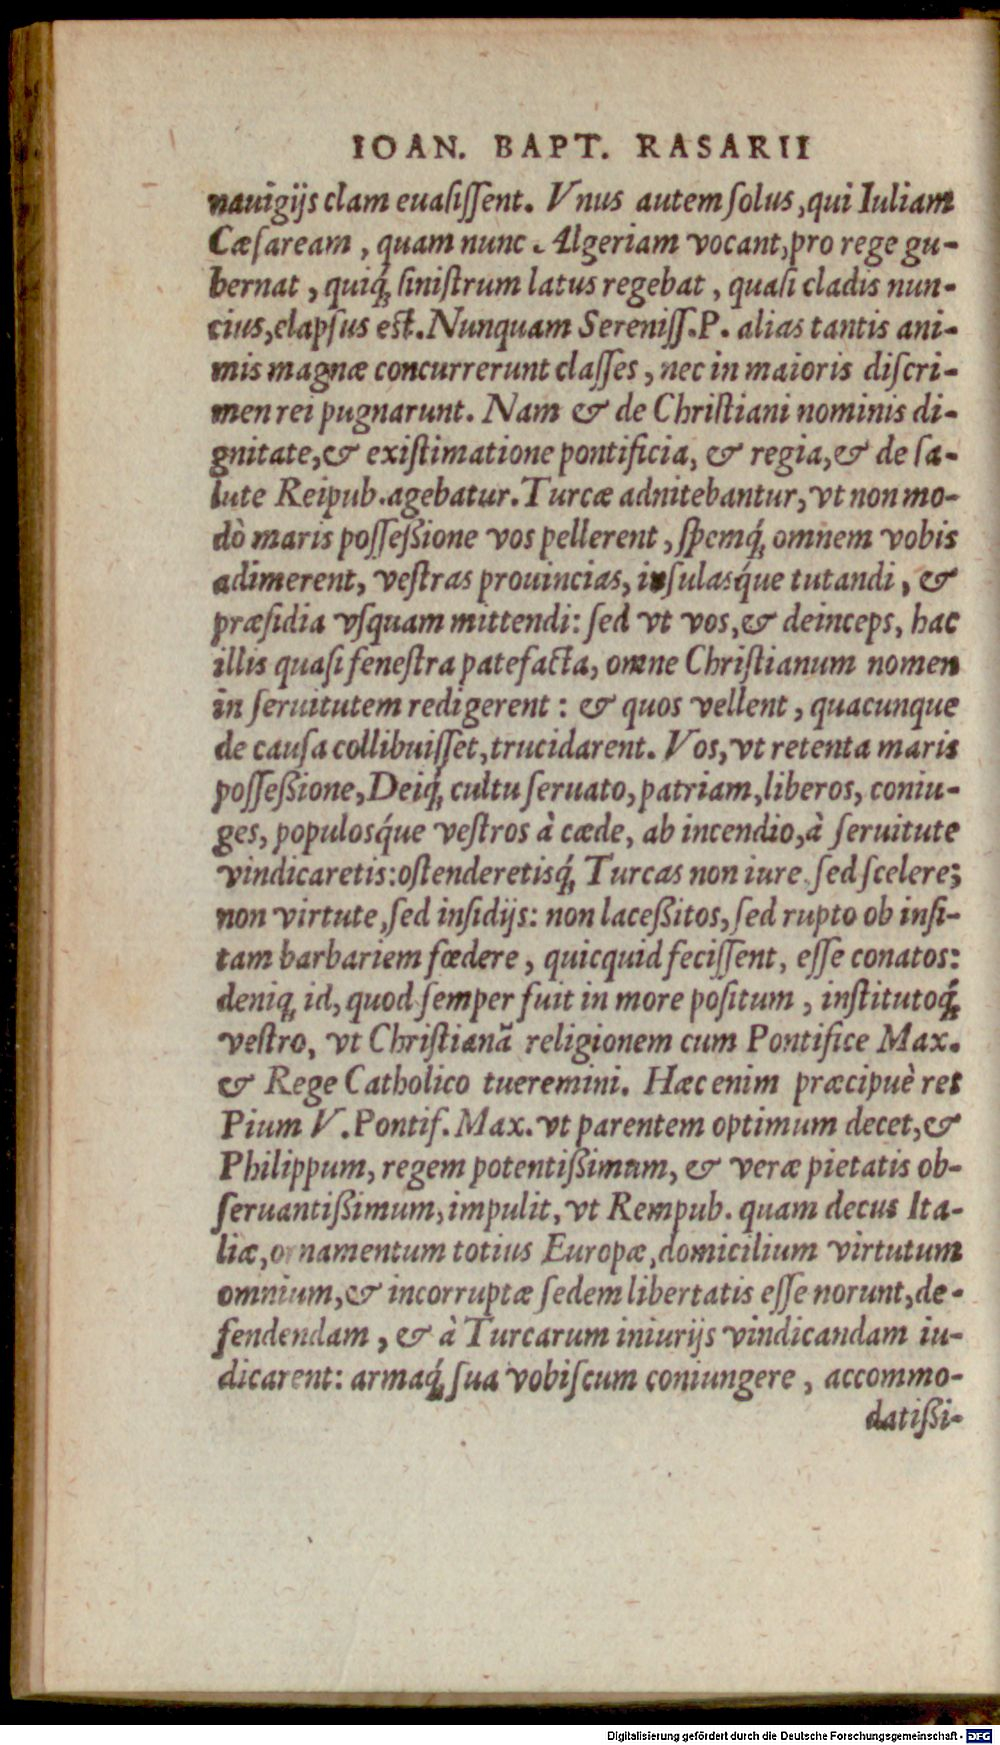 IOAN. BAPT. RASARII
nauigijs clam euasiſſent. Vnus autem ſolus, qui Iuliam
Cæſaream, quam nunc Algeriam vocant, pro rege gu-
bernat, quiq́; siniſtrum latus regebat, quaſi cladis nun-
cius, elapſus eſt. Nunquam Sereniſſ. P. alias tantis ani-
mis magnæ concurrerunt claſſes, nec in maioris diſcri-
men rei pugnarunt. Nam & de Chriſtiani nominis di-
gnitate, & exiſtimatione pontificia, & regia, & de ſa-
lute Reipub. agebatur. Turcæ adnitebantur, vt non mo-
dò maris poſſeßione vos pellerent, ſpemq́; omnem vobis
adimerent, veſtras prouincias, inſulasq́ue tutandi, &
præſidia vſquam mittendi: ſed vt vos, & deinceps, hac
illis quaſi feneſtra patefacta, omne Chriſtianum nomen
in ſeruitutem redigerent: & quos vellent, quacunque
de cauſa collibuiſſet, trucidarent. Vos, vt retenta maris
poſſeßione, Deiq́; cultu ſeruato, patriam, liberos, coniu-
ges, populosq́ue veſtros à cæde, ab incendio, à ſeruitute
vindicaretis: oſtenderetisq́; Turcas non iure ſed ſcelere;
non virtute, ſed inſidijs: non laceßitos, ſed rupto ob inſi-
tam barbariem fœdere, quicquid feciſſent, eſſe conatos:
deniq; id, quod ſemper fuit in more poſitum, inſtitutoq́;
veſtro, vt Chriſtianã religionem cum Pontifice Max.
& Rege Catholico tueremini. Hæc enim præcipuè res
Pium V. Pontif. Max. vt parentem optimum decet, &
Philippum, regem potentißimum, & veræ pietatis ob-
ſeruantißimum, impulit, vt Rempub. quam decus Ita-
liæ, ornamentum totius Europæ, domicilium virtutum
omnium, & incorruptæ ſedem libertatis eſſe norunt, de-
fendendam, & à Turcarum iniurijs vindicandam iu-
dicarent: armaq́; ſua vobiſcum coniungere, accommo-
datißi-
Digitalisierung gefördert durch die Deutsche Forschungsgemeinschaft - DFG